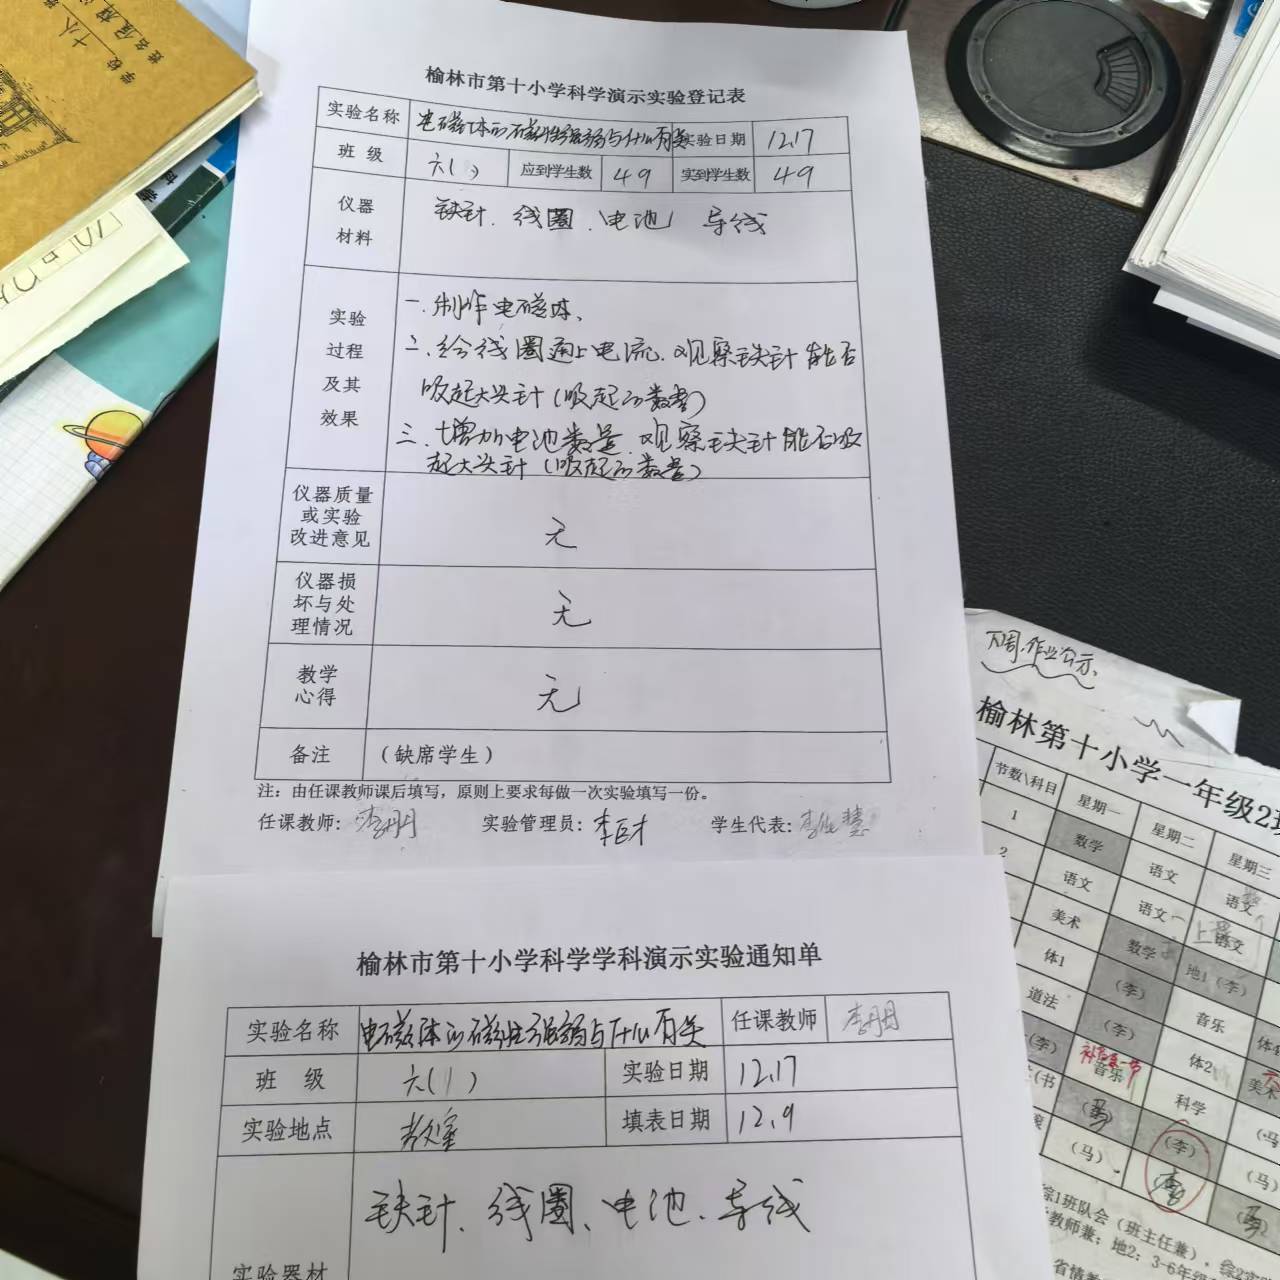 学校 十八
姓名
榆林市第十小学科学演示实验登记表
实验名称 电磁体的磁性强弱与什么有关 实验日期 12.17
班 级 六( ) 应到学生数 49 实到学生数 49
仪器
材料
铁针、线圈、电池 导线
实验
过程
及其
效果
一.制作电磁体、
二、给线圈通上电流.观察铁针能否
吸起大头针(吸起的数量)
三、增加电池数量.观察铁针能否吸
起大头针(吸起的数量)
仪器质量
或实验
改进意见
无
仪器损
坏与处
理情况
无
教学
心得
无
备注 (缺席学生)
注:由任课教师课后填写,原则上要求每做一次实验填写一份。
任课教师: 实验管理员: 学生代表:
榆林市第十小学科学学科演示实验通知单
实验名称 电磁体的磁性强弱与什么有关 任课教师
班 级 六(1) 实验日期 12.17
实验地点 教室 填表日期 12.9
铁针、线圈、电池、导线
实验器材
下周作业公示
榆林第十小学一年级2班
节数\科目 星期一 星期二 星期三
1 数学 语文 语文
2 语文 语文 语文
美术 数学 地1(李)
体1 (李) 音乐
道法 (李) 体2
(李) 音乐 科学 美术
(书 (李)
(马) (马)
综1班队会(班主任兼),综2
教师兼;地2:3-6年级